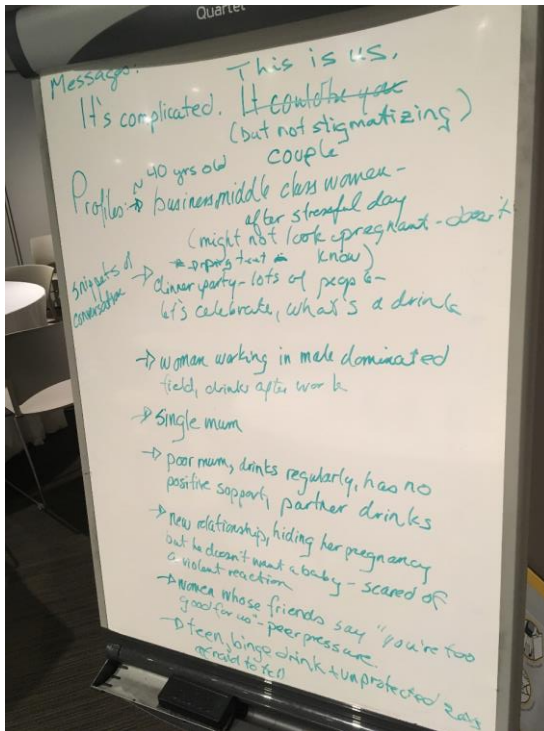 Quartet
Messages:
This is us.
It's complicated. It could be you
(but not stigmatizing)
couple
~ 40 yrs old
Profiles: → business middle class women -
after stressful day
(might not look pregnant - doesn't
know)
snippets of
conversation
→ dinner party - lots of people -
let's celebrate, what's a drink
→ woman working in male dominated
field, drinks after work
→ single mum
→ poor mum, drinks regularly, has no
positive support, partner drinks
→ new relationship, hiding her pregnancy
but he doesn't want a baby - scared of
a violent reaction
→ women whose friends say "you're too
good for us" - peer pressure
→ teen, binge drink + unprotected
afraid to tell